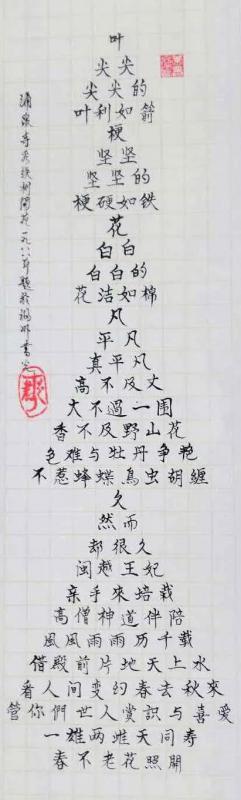 叶
尖尖
尖尖的
叶利如箭
梗
坚坚
坚坚的
梗硬如铁
花
白白
白白的
花洁如棉
凡
平凡
真平凡
高不及丈
大不過一围
香不及野山花
色难与牡丹争艳
不惹蜂蝶鳥虫胡纏
久
然而
却很久
闽越王妃
亲手來培栽
高僧神道伴陪
風風雨雨历千载
借殿前片地天上水
看人间变约春去秋來
管你們世人赏識与喜爱
一雄两雌天同寿
春不老花照開
涌泉寺觀铁树開花一九八八年題於福州書